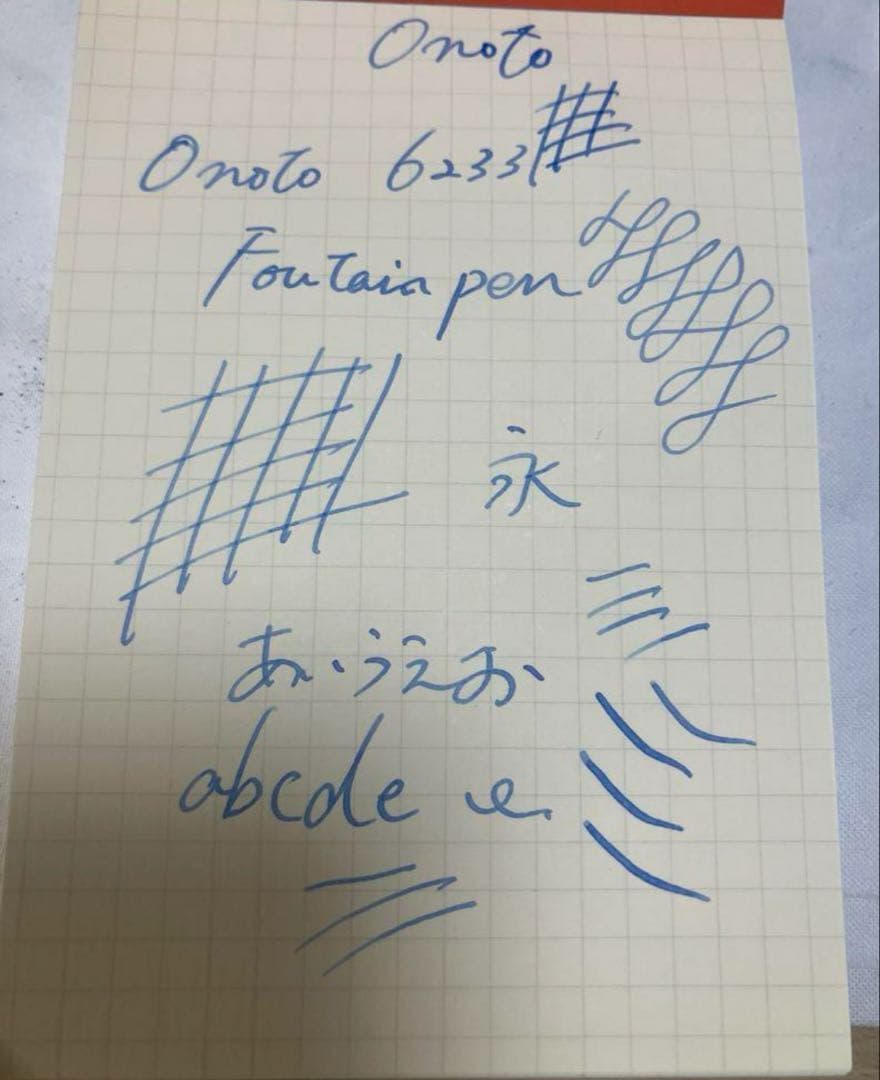 Onoto
Onoto 6233
Foutain pen
永
あいうえお
abcde e